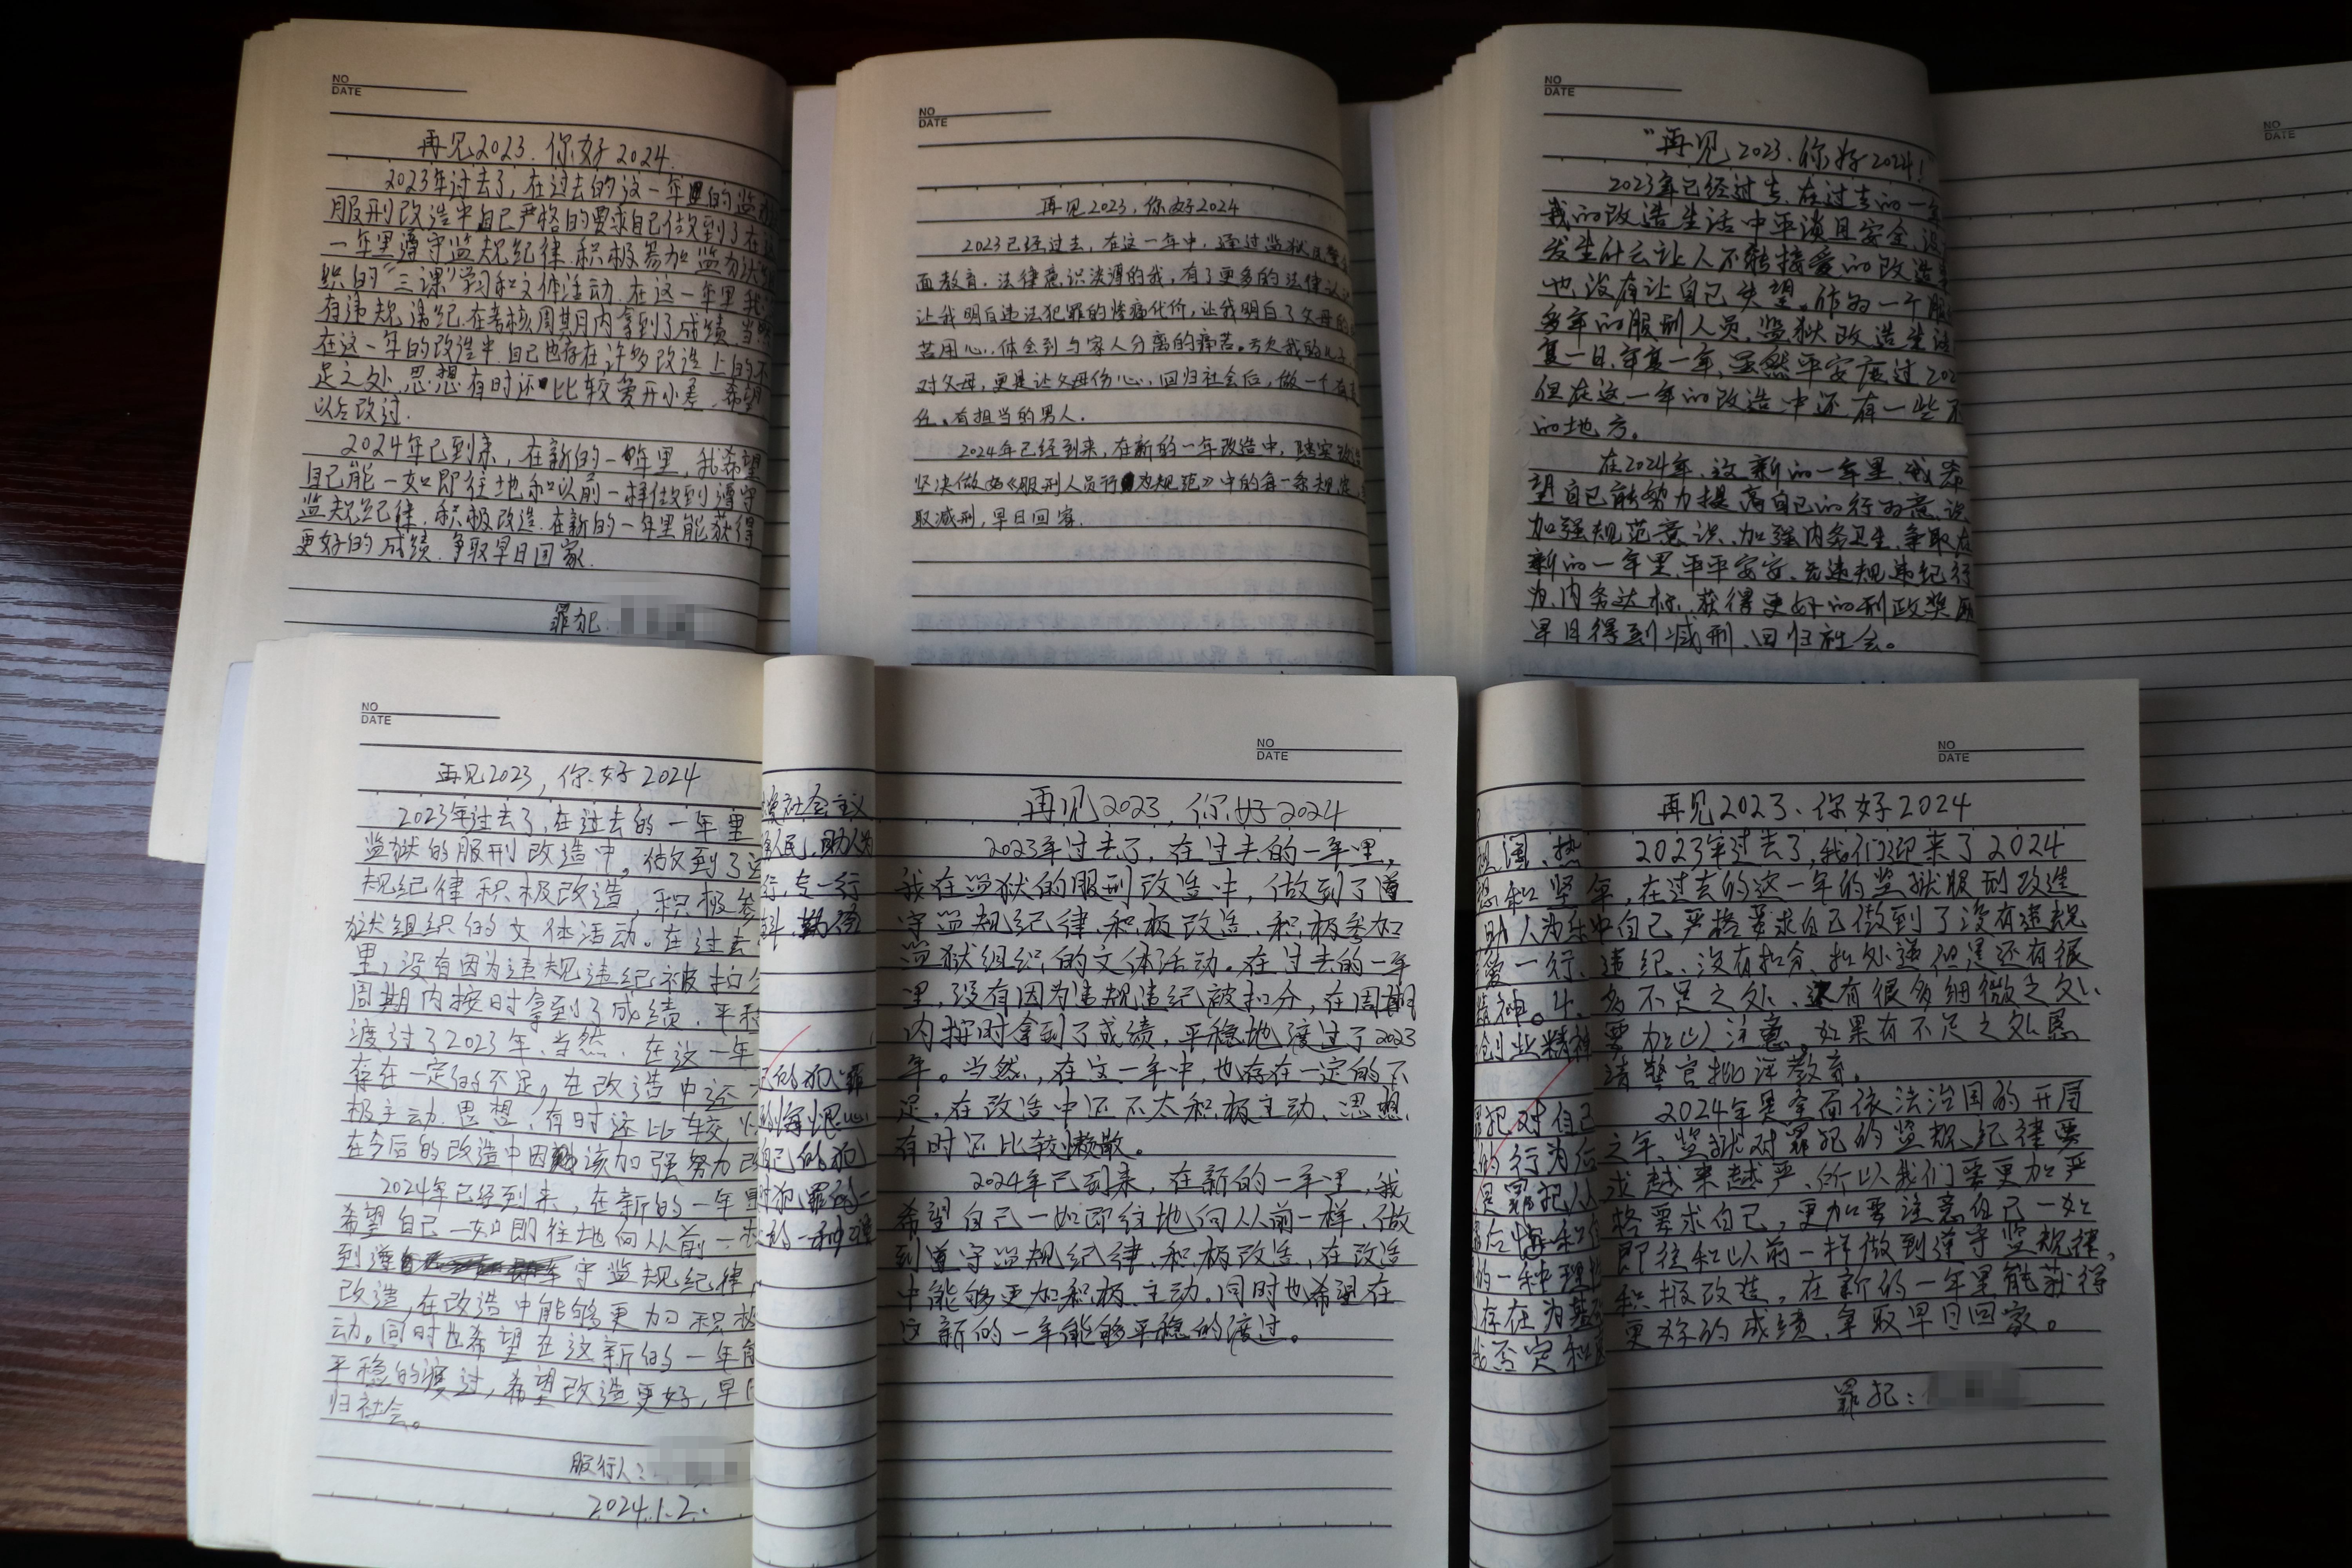 NO
DATE
再见2023.你好2024.
2023年过去了,在过去的这一年里的监狱
服刑改造中自己严格的要求自己做到了在这
一年里遵守监规纪律.积极参加监狱组
织的“三课”学习和文体活动.在这一年里我没
有违规违纪.在考核周期内拿到了成绩.当然
在这一年的改造中.自己也存在许多改造上的不
足之处.思想有时还比较爱开小差.希望
以后改过.
2024年已到来,在新的一年里,我希望
自己能一如即往地和以前一样做到遵守
监规纪律.积极改造.在新的一年里能获得
更好的成绩.争取早日回家.
罪犯:
NO
DATE
再见2023,你好2024
2023已经过去,在这一年中,通过监狱
面教育.法律意识淡薄的我,有了更多的法律认
让我明白违法犯罪的惨痛代价,让我明白了父母的
苦用心.体会到与家人分离的痛苦。亏欠我的儿子
对父母,更是让父母伤心.回归社会后,做一个有责
任.有担当的男人.
2024年已经到来,在新的一年改造中,踏实改造
坚决做好《服刑人员行为规范》中的每一条规定
取减刑,早日回家.
NO
DATE
“再见2023.你好2024!
2023年已经过去.在过去的一年
我的改造生活中平淡且安全,没
发生什么让人不能接受的改造
也没有让自己失望。作为一个服
多年的服刑人员.监狱改造生活
复一日.年复一年,虽然平安度过202
但在这一年的改造中还有一些不
的地方。
在2024年.这新的一年里.我希
望自己能努力提高自己的行为意识
加强规范意识.加强内务卫生.争取在
新的一年里.平平安安.无违规违纪行
为.内务达标.获得更好的刑政奖励
早日得到减刑.回归社会。
NO
DATE
NO
DATE
再见2023,你好2024
2023年过去了,在过去的一年里
监狱的服刑改造中,做到了遵
规纪律积极改造,积极参
狱组织的文体活动。在过去
里,没有因为违规违纪被扣分
周期内按时拿到了成绩.平稳
渡过了2023年.当然.在这一年
存在一定的不足,在改造中还不
极主动.思想.有时还比较
在今后的改造中因该加强努力改
2024年已经到来,在新的一年里
希望自己一如即往地向从前一
到遵守监规纪律,
改造,在改造中能够更加积极
动。同时也希望在这新的一年能
平稳的渡过,希望改造更好,早日
归社会。
服行人:
2024.1.2.
社会主义
人民,助人为
行,专一行
斗.勤俭
的犯罪
悔恨
自己的犯
犯罪的一
的一种
NO
DATE
再见2023,你好2024
2023年过去了,在过去的一年里,
我在监狱的服刑改造中,做到了遵
守监规纪律.积极改造.积极参加
监狱组织的文体活动。在过去的一年
里,没有因为违规违纪被扣分,在周期
内按时拿到了成绩,平稳地渡过了2023
年。当然,在这一年中,也存在一定的不
足,在改造中还不太积极主动、思想
有时还比较懒散。
2024年已到来,在新的一年里,我
希望自己一如即往地向从前一样,做
到遵守监规纪律.积极改造,在改造
中能够更加积极.主动.同时也希望在
这新的一年能够平稳的渡过。
国、热
和坚
助人为乐
爱一行、
精神。4、
创业精神
犯对自己
的行为后
罪犯认
后悔和
的一种理性
存在为基础
我否定和
NO
DATE
再见2023、你好2024
2023年过去了,我们迎来了2024
年,在过去的这一年的监狱服刑改造
中自己严格要求自己做到了没有违规
违纪、没有扣分、扣处遇但是还有很
多不足之处、还有很多细微之处
要加以注意。如果有不足之处恳
请警官批评教育。
2024年是全面依法治国的开局
之年、监狱对罪犯的监规纪律要
求越来越严、所以我们需更加严
格要求自己,更加要注意自己一如
即往和以前一样做到遵守监规律,
积极改造,在新的一年里能获得
更好的成绩,争取早日回家。
罪犯: